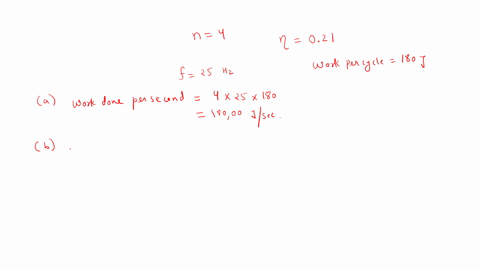 n = 4
η = 0.21
work per cycle = 180 J
f = 25 Hz
(a) work done per second = 4 x 25 x 180
= 180,00 J/sec.
(b) .